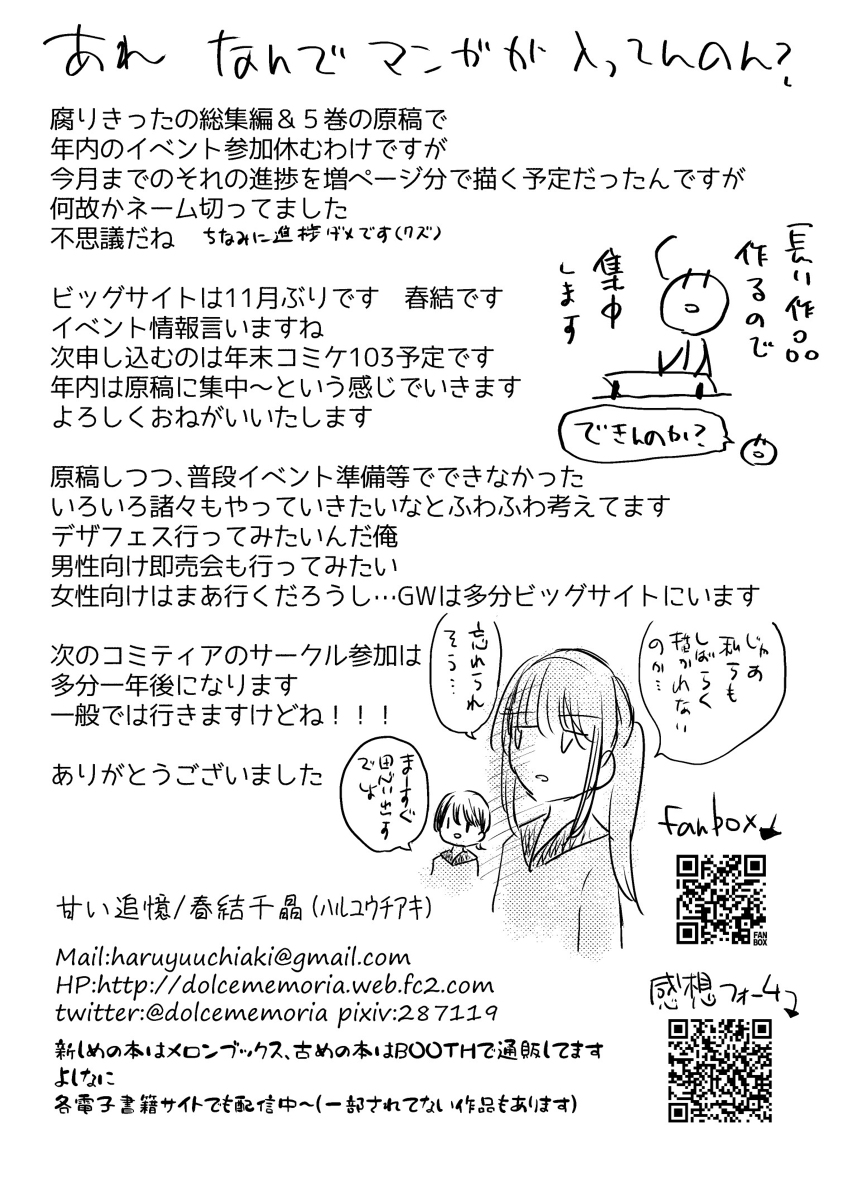 あれ なんでマンガが入ってんのん？
腐りきったの総集編＆５巻の原稿で
年内のイベント参加休むわけですが
今月までのそれの進捗を増ページ分で描く予定だったんですが
何故かネーム切ってました
不思議だね ちなみに進捗ダメです(クズ)
長い作品
作るので
集中
します
できんのか？
ビッグサイトは11月ぶりです　春結です
イベント情報言いますね
次申し込むのは年末コミケ103予定です
年内は原稿に集中〜という感じでいきます
よろしくおねがいいたします
原稿しつつ、普段イベント準備等でできなかった
いろいろ諸々もやっていきたいなとふわふわ考えてます
デザフェス行ってみたいんだ俺
男性向け即売会も行ってみたい
女性向けはまあ行くだろうし…GWは多分ビッグサイトにいます
次のコミティアのサークル参加は
多分一年後になります
一般では行きますけどね！！！
ありがとうございました
じゃあ
私らも
しばらく
描かれない
のか…
忘れられ
そう…
まーすぐ
思い出す
でしょ
fanbox
FAN
BOX
甘い追憶/春結千晶(ハルユウチアキ)
Mail:haruyuuchiaki@gmail.com
HP:http://dolcememoria.web.fc2.com
twitter:@dolcememoria pixiv:287119
感想フォーム
新しめの本はメロンブックス、古めの本はBOOTHで通販してます
よしなに
各電子書籍サイトでも配信中〜(一部されてない作品もあります)